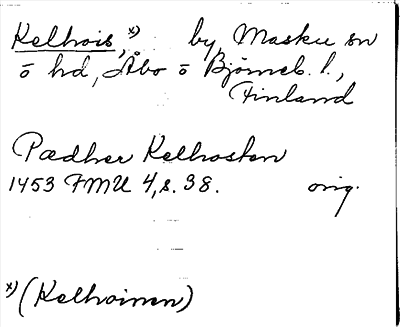 Kelhois,ˣ⁾ by, Masku sn
o hd, Åbo o Björneb. l.,
Finland
Pædher Kelhosten
1453 FMU 4, s. 38. orig.
ˣ⁾ (Kelhoinen)